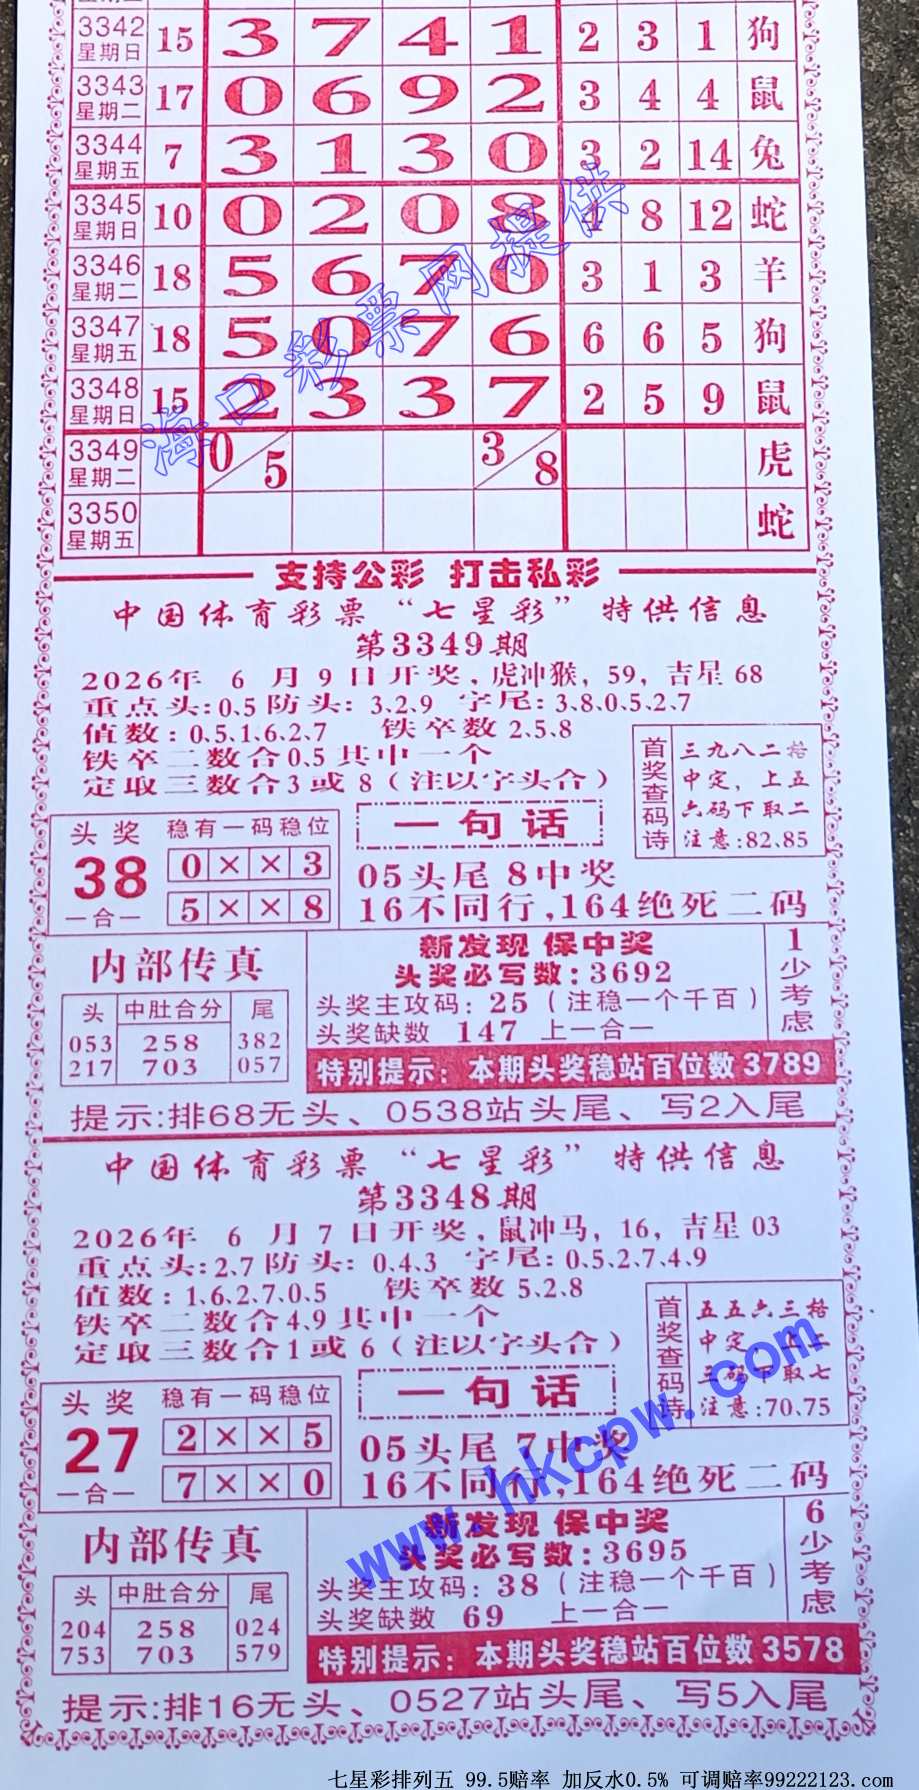 3342 15 3 7 4 1 2 3 1 狗
星期日
3343 17 0 6 9 2 3 4 4 鼠
星期二
3344 7 3 1 3 0 3 2 14 兔
星期五
3345 10 0 2 0 8 1 8 12 蛇
星期日
3346 18 5 6 7 0 3 1 3 羊
星期二
3347 18 5 0 7 6 6 6 5 狗
星期五
3348 15 2 3 3 7 2 5 9 鼠
星期日
3349 0/5 3/8 虎
星期二
3350 蛇
星期五
海口彩票网提供
支持公彩 打击私彩
中国体育彩票“七星彩”特供信息
第3349期
2026年 6 月 9 日开奖,虎冲猴,59,吉星 68
重点头:0.5 防头: 3.2.9 字尾: 3.8.0.5.2.7
值数: 0.5.1.6.2.7 铁卒数 2.5.8
铁卒二数合0.5 其中一个
定取三数合3 或 8 (注以字头合)
首奖查码诗
三九八二格
中定,上五
六码下取二
注意:82.85
头奖
38
一合一
稳有一码稳位
0 × × 3
5 × × 8
一句话
05头尾 8中奖
16不同行,164绝死二码
内部传真
头 中肚合分 尾
053 258 382
217 703 057
新发现 保中奖
头奖必写数:3692
头奖主攻码: 25 (注稳一个千百)
头奖缺数 147 上一合一
1少考虑
特别提示: 本期头奖稳站百位数 3789
提示:排68无头、0538站头尾、写2入尾
中国体育彩票“七星彩”特供信息
第3348期
2026年 6 月 7 日开奖,鼠冲马,16,吉星 03
重点头:2.7 防头: 0.4.3 字尾: 0.5.2.7.4.9
值数: 1.6.2.7.0.5 铁卒数 5.2.8
铁卒二数合4.9 其中一个
定取三数合1 或 6 (注以字头合)
首奖查码诗
五五六三格
中定,上二
三码下取七
注意:70.75
头奖
27
一合一
稳有一码稳位
2 × × 5
7 × × 0
一句话
05头尾 7中奖
16不同行,164绝死二码
www.hkcpw.com
内部传真
头 中肚合分 尾
204 258 024
753 703 579
新发现 保中奖
头奖必写数:3695
头奖主攻码: 38 (注稳一个千百)
头奖缺数 69 上一合一
6少考虑
特别提示: 本期头奖稳站百位数 3578
提示:排16无头、0527站头尾、写5入尾
七星彩排列五 99.5赔率 加反水0.5% 可调赔率99222123.com